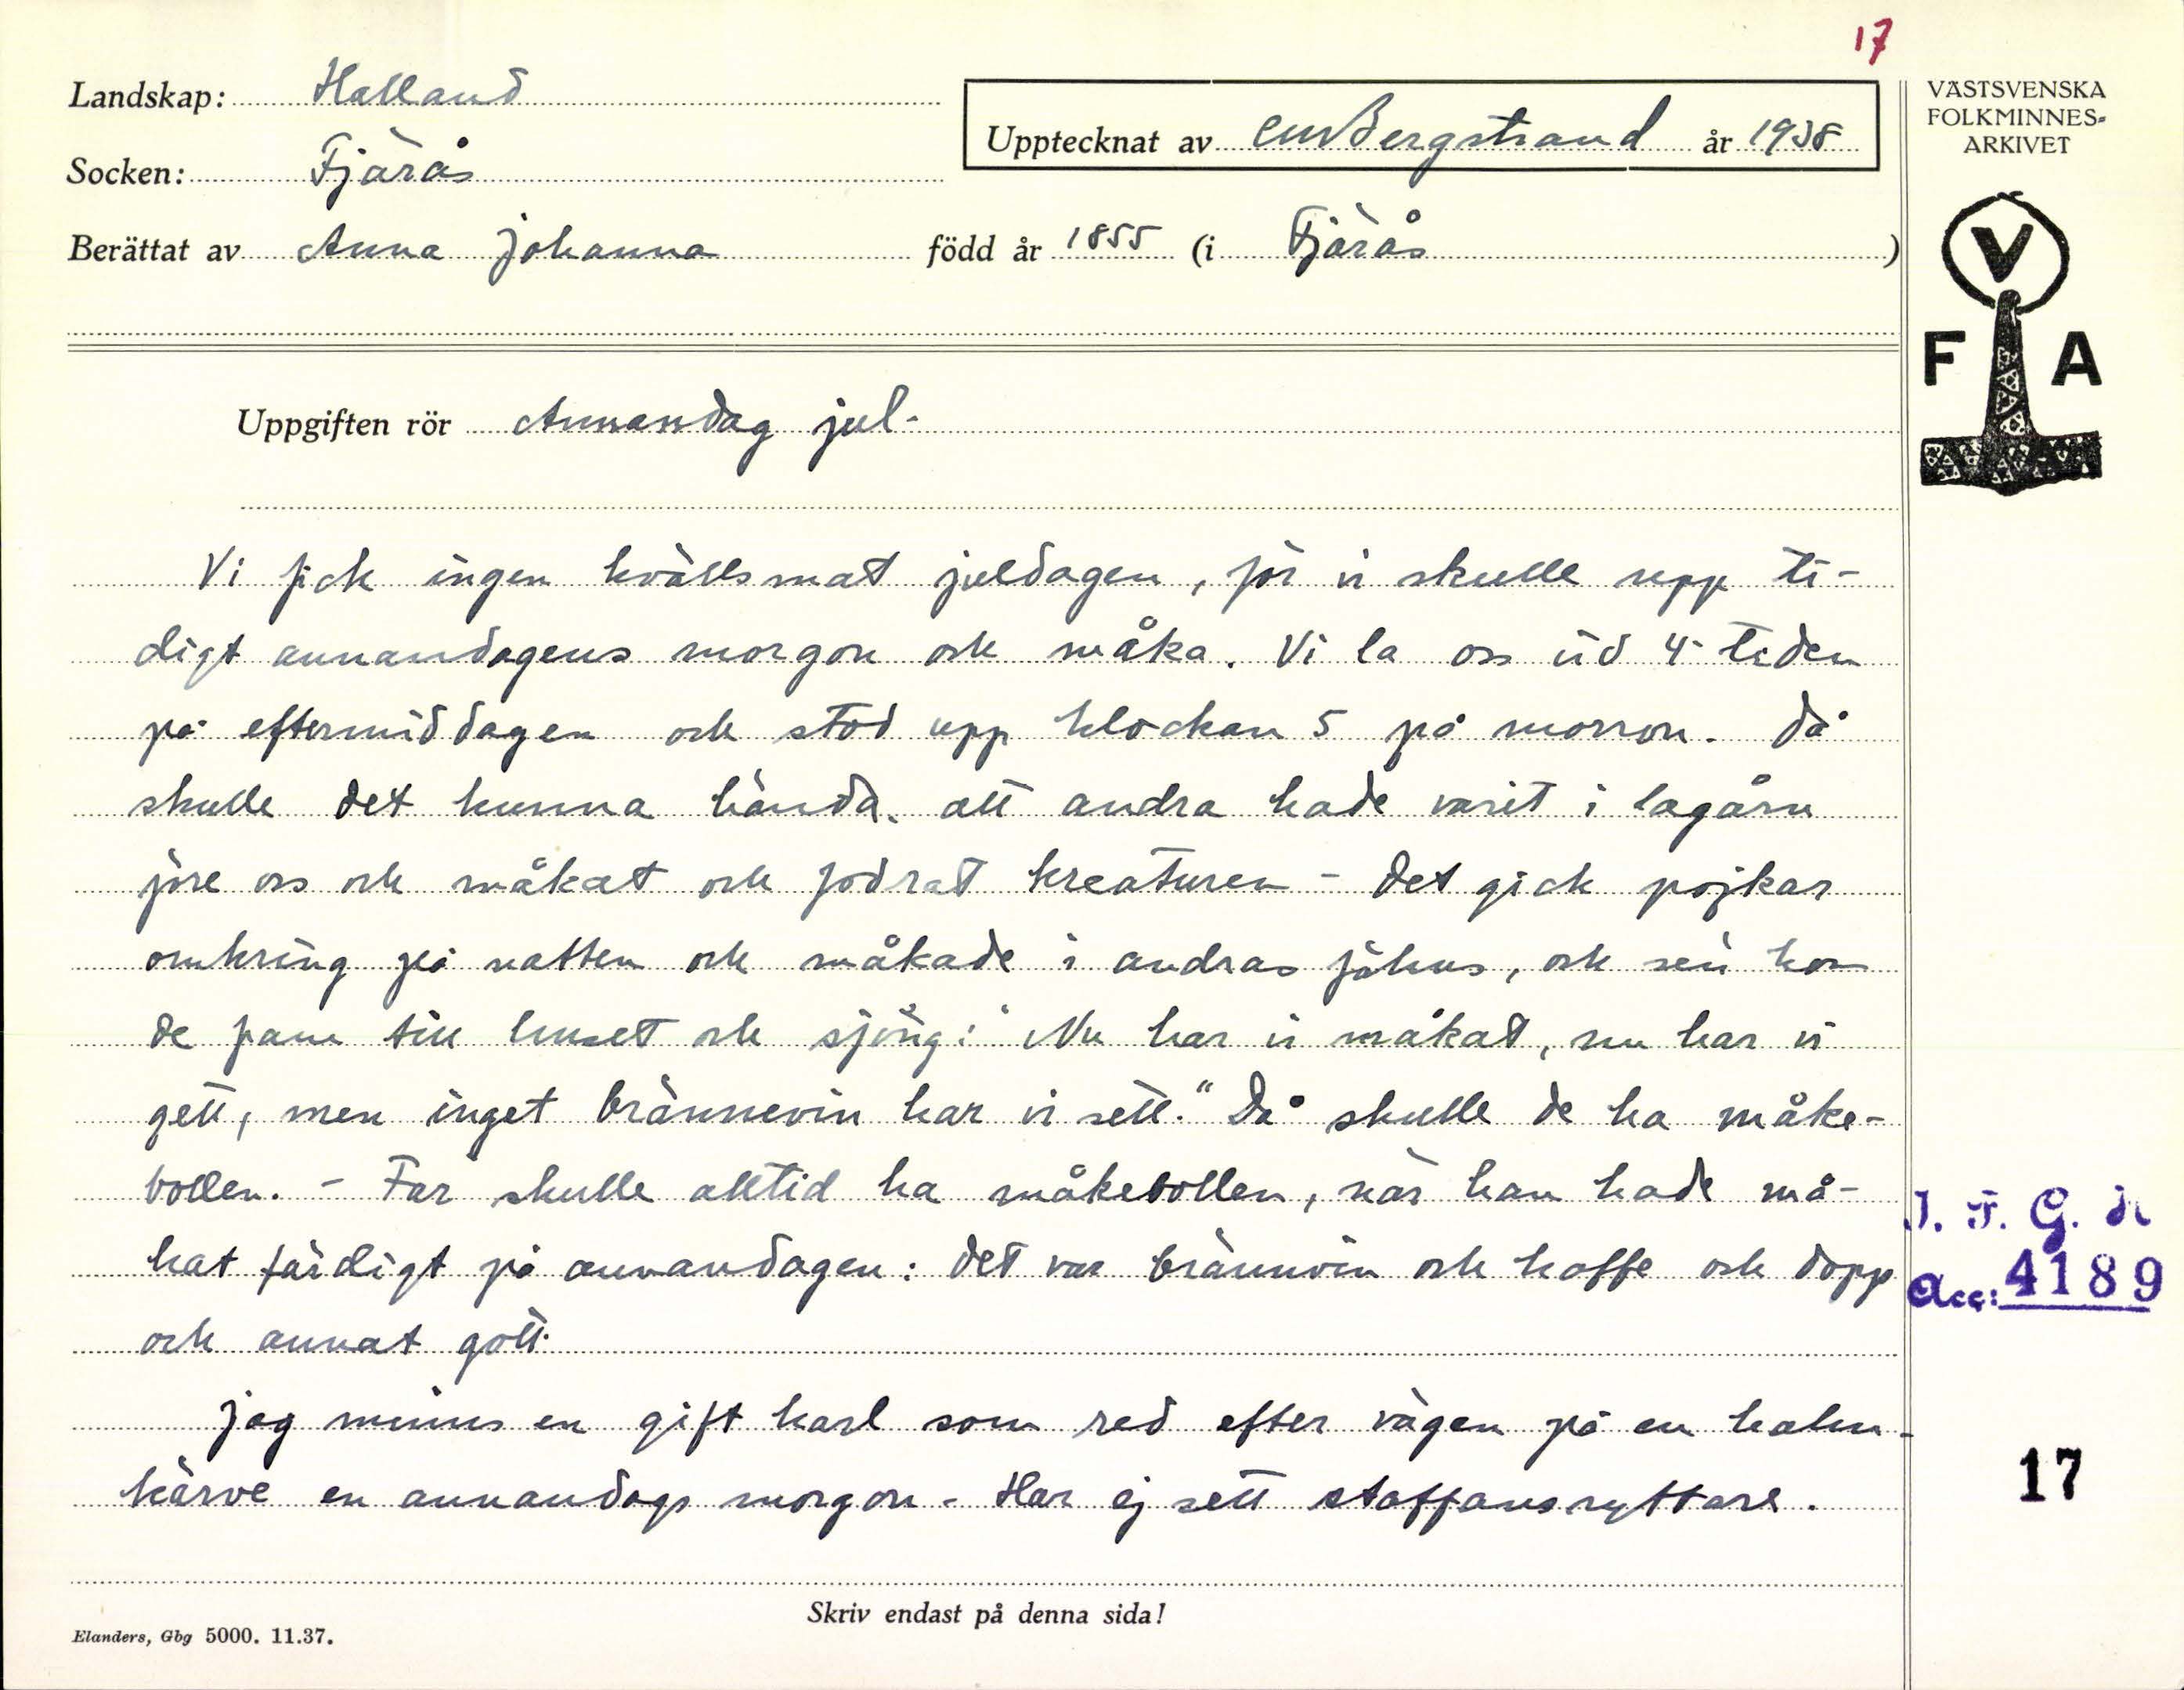 17
Landskap: Halland
Upptecknat av CMBergstrand år 1938
Socken: Fjärås
Berättat av Anna Johanna född år 1855 (i Fjärås )
VÄSTSVENSKA
FOLKMINNES-
ARKIVET
V
F A
Uppgiften rör Annandag jul.
Vi fick ingen kvällsmat juldagen, för vi skulle upp ti-
digt annandagens morgon och måka. Vi la oss vid 4-tiden
på eftermiddagen och stod upp klockan 5 på morron. Då
skulle det kunna hända, att andra hade varit i lagårn
före oss och måkat och fodrat kreaturen - det gick pojkar
omkring på natten och måkade i andras fähus, och sen kom
de fram till huset och sjöng: "Nu har vi måkat, nu har vi
gett, men inget brännevin har vi sett." Då skulle de ha måke-
bollen. - Far skulle alltid ha måkebollen, när han hade må-
kat färdigt på annandagen: det var brännvin och kaffe och dopp
och annat gott.
Jag minns en gift karl som red efter vägen på en halm-
kärve en annandags morgon. Har ej sett staffansryttare.
I. F. G. s
Acc: 4189
17
Skriv endast på denna sida!
Elanders, Gbg 5000. 11.37.